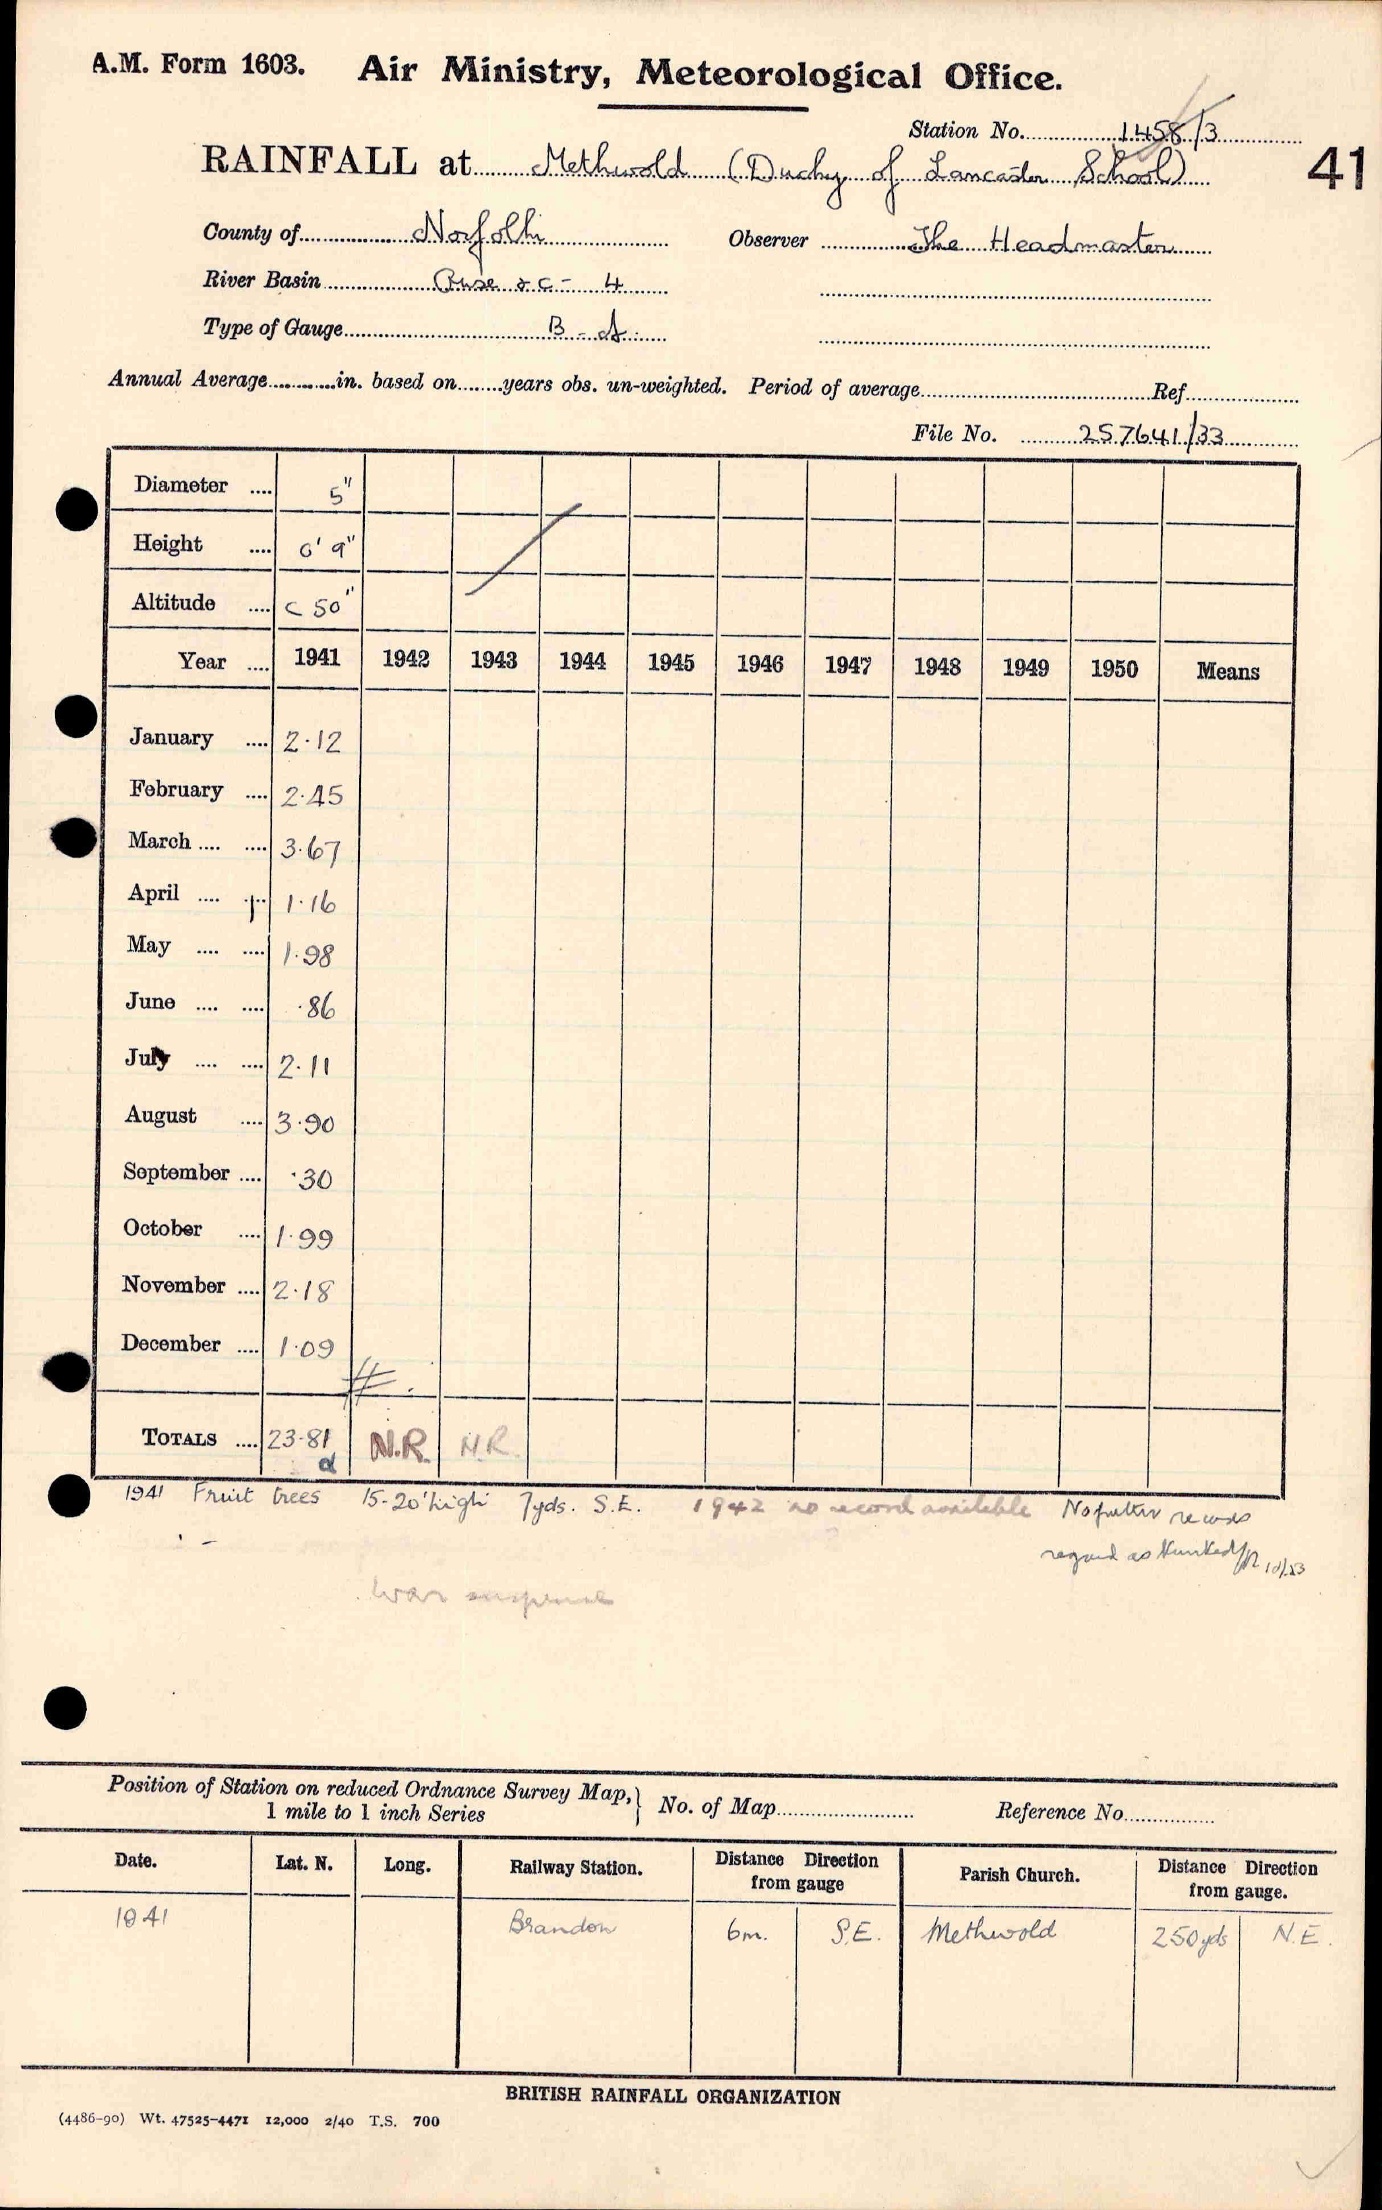 A.M. Form 1603. Air Ministry, Meteorological Office.
Station No. 1458/3
RAINFALL at Methwold (Duchy of Lancaster School)
41
County of Norfolk Observer The Headmaster
River Basin Ouse &c - 4
Type of Gauge B-
Annual Average in. based on years obs. un-weighted. Period of average Ref
File No. 257641/33
Diameter 5"
Height 0' 9"
Altitude c 50"
Year 1941 1942 1943 1944 1945 1946 1947 1948 1949 1950 Means
January 2.12
February 2.45
March 3.67
April 1.16
May 1.98
June .86
July 2.11
August 3.90
September .30
October 1.99
November 2.18
December 1.09
TOTALS 23.81 N.R. N.R.
d
1941 Fruit trees 15-20' high 7yds. S.E. 1942 no record available No further records
regard as
War suspense
Position of Station on reduced Ordnance Survey Map, } No. of Map Reference No.
1 mile to 1 inch Series
Date. Lat. N. Long. Railway Station. Distance Direction from gauge Parish Church. Distance Direction from gauge.
1941 Brandon 6m. S.E. Methwold 250yds N.E.
BRITISH RAINFALL ORGANIZATION
(4486-90) Wt. 47525-4471 12,000 2/40 T.S. 700